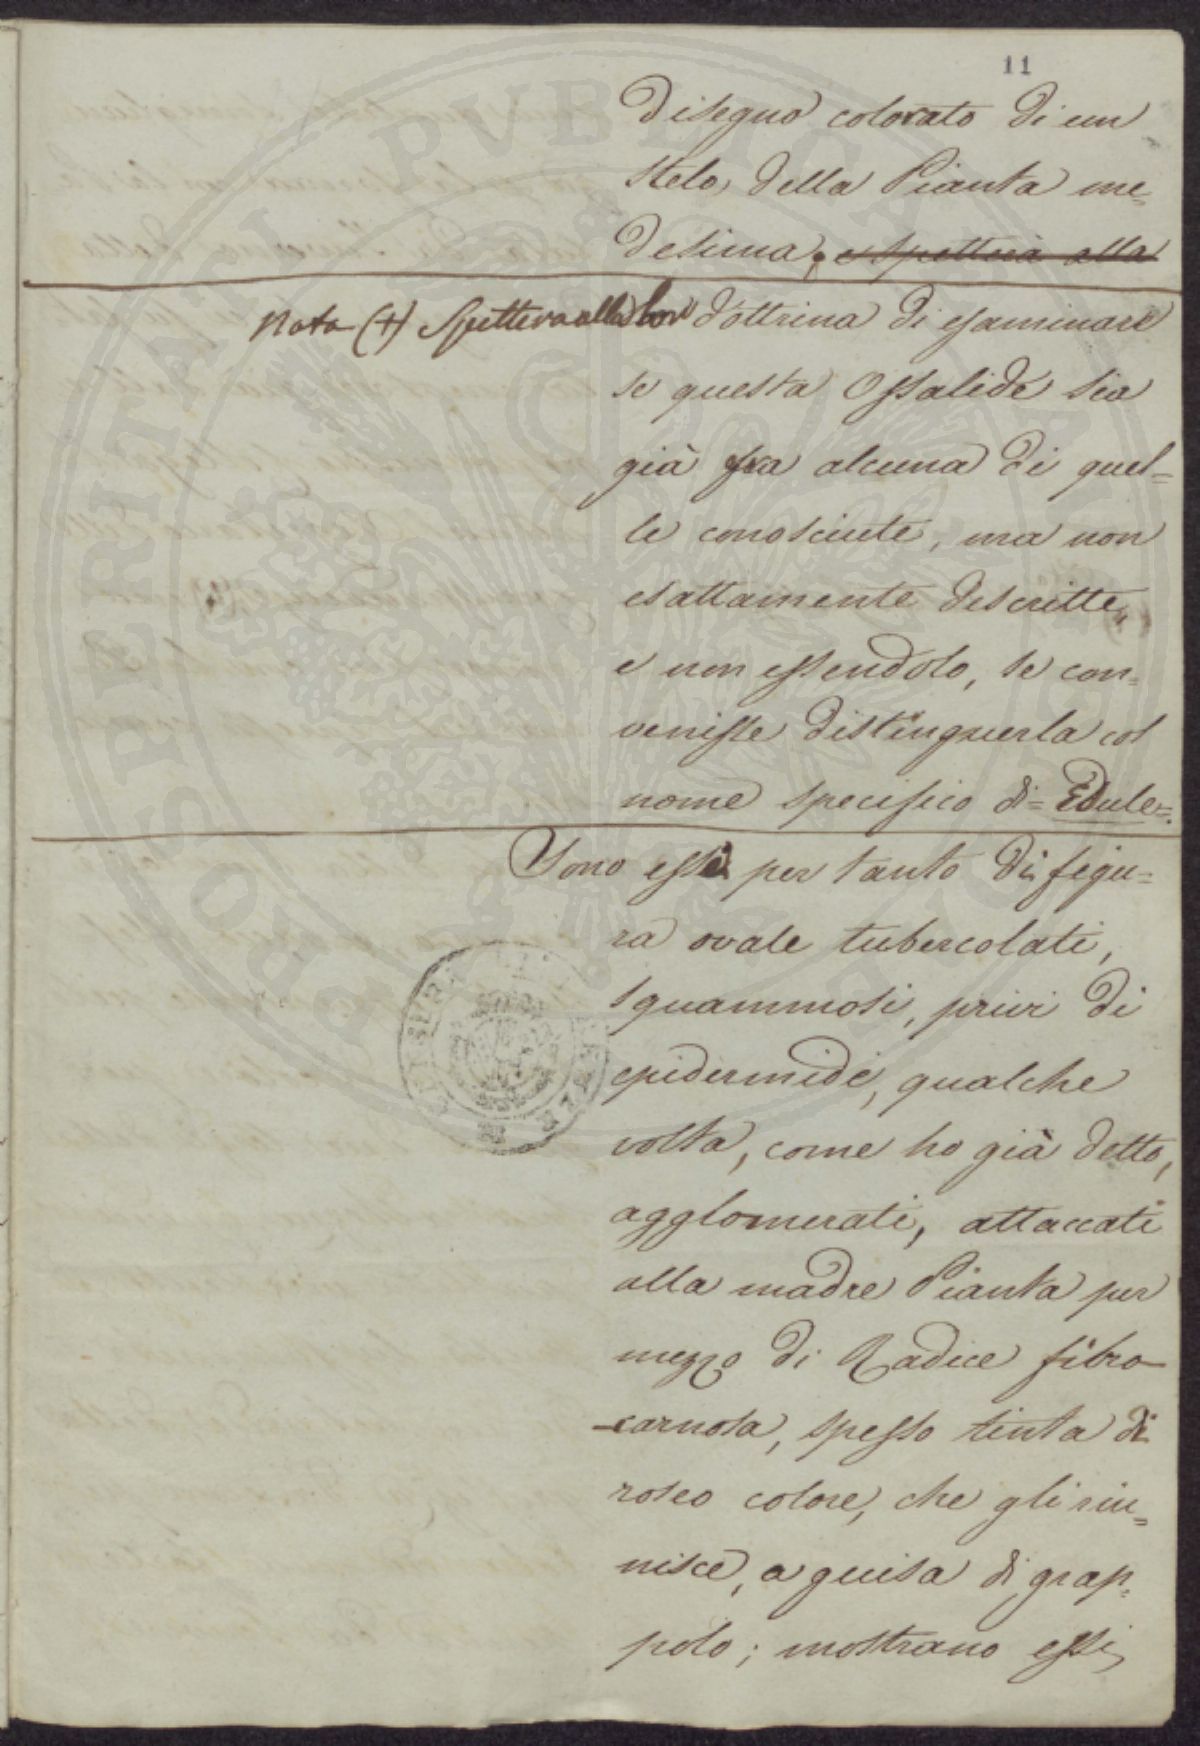 11
disegno colorato di un
stelo, della Pianta me=
desima. e spetterà alla
Nota (+) Spetterà alla loro dottrina di esaminare
se questa Ossalide sia
già fra alcuna di quel=
le conosciute, ma non
esattamente descritte,
e non essendolo, se con=
venisse distinguerla col
nome specifico di= Edule=.
Sono essi per tanto di figu=
ra ovale tubercolati,
squammosi, privi di
epidermide, qualche
volta, come ho già detto,
agglomerati, attaccati
alla madre Pianta per
mezzo di Radice fibro
-carnosa, spesso tinta di
roseo colore, che gli riu=
nisce, a guisa di grap=
polo; mostrano essi
PROSPERITATI PVBLICAE